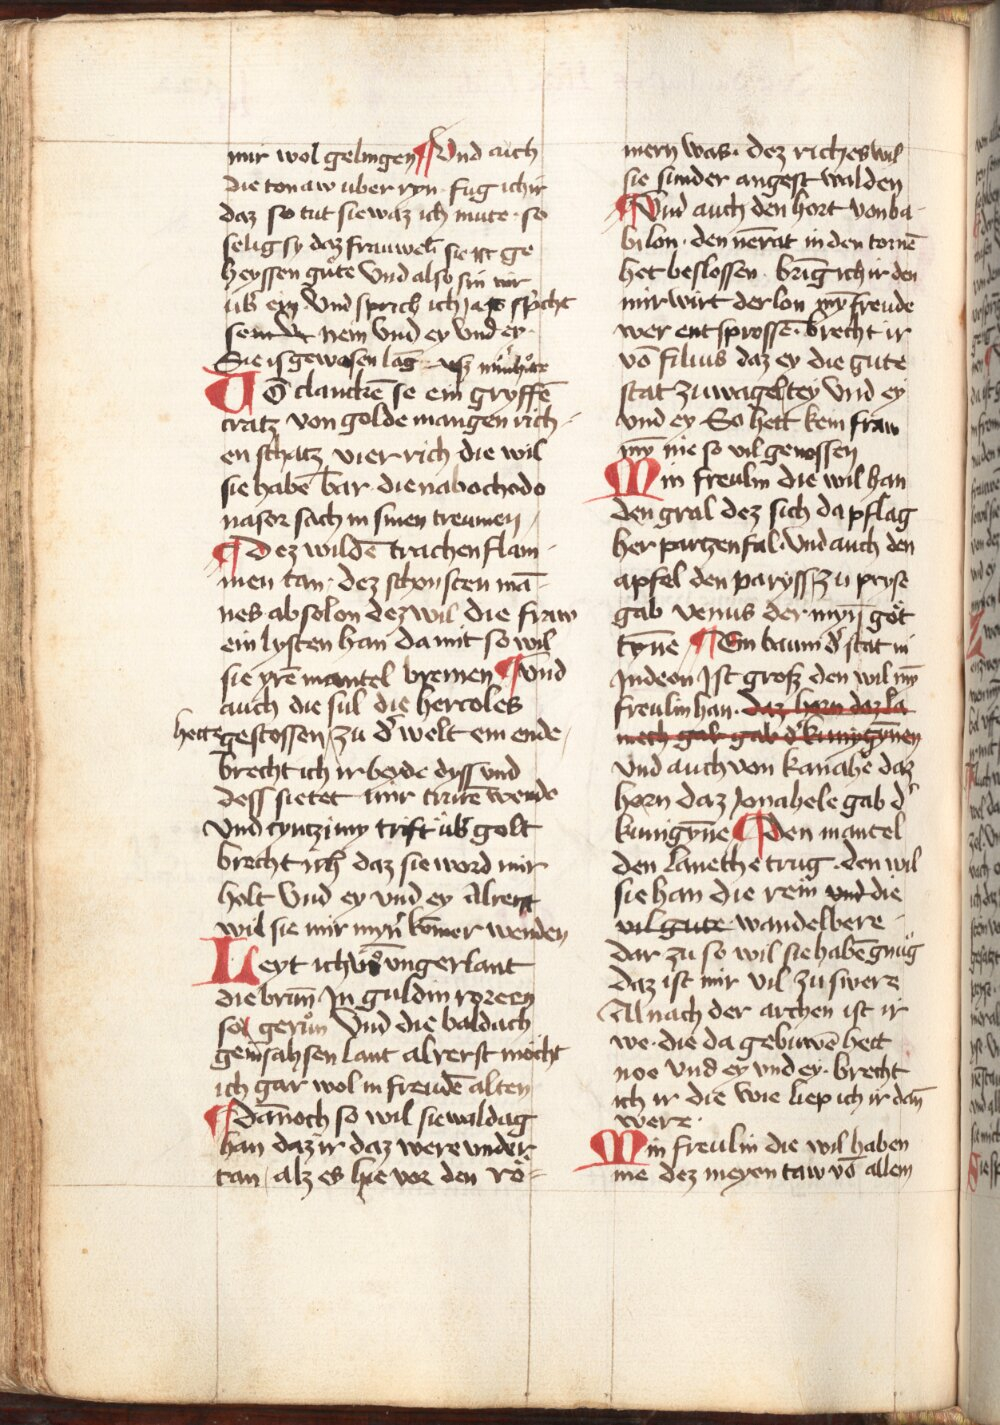 mir wol gelingen ¶ Vnd auch
die tonaw uber ryn · fug ich ir
daz so tut sie waz ich mute · so
selig sy daz frauweli sie ist ge
heyssen gůte Vnd also sin wir
úb̾ eyn · Vnd sprich ich Ja so sp̾cht
nein vnd ey vnd ey ·
Sie ist gewesen lāg vsz mīner hůte
Vō clauckē se ein gryffē
cratz von golde mangen rich
en schatz vier rich die wil
sie habē bar · die nabochodo
nasor sach in sinen treumen
¶ Dez wildē trachen flam
men tan · dez schonsten mā
nes absolon dez wil die fraw
ein lysten han da mit so wil
sie yrē mantel bremen ¶ Vnd
auch die sul die hercoles
hette gestossen zu d̾ welt ein ende
brecht ich ir beyde dyss vnd
dess sie tet mir trurē wende
Vnd cyntzimy trift úb̾ golt
brecht ich daz sie word mir
holt Vnd ey vnd ey Alrerst
wil sie mir myn̄ komer wenden
Leyt ich vs̄ vngerlant
die brun̄ In guldin roren
sol gerůn Vnd die baldach
gein sahsen lant alrerst mocht
ich gar wol in freudē alten
¶ Dānoch so wil sie waldag
han daz ir daz were vnder
tan alz es hie vor den rō
mern was · dez riches wil
sie sunder angest walden
¶ Vnd auch den hort von ba
bilon · den nērat in den tornē
het beslossen · brīg ich ir den
mir wirt der lon my̅ freude
wer entsprossē · brecht ir
vō filius daz ey die gute
stat zu wageltey Vnd ey
vnd ey So hett kein fraw
my̅ nie so vil genossen
Min freulin die wil han
den gral dez sich da pflag
her partzenfal · Vnd auch den
apfel den paryss zu pryse
gab venus der myn̄ göt
tyne ¶ Ein baum d̾ stat in
Indeon Ist grosz den wil my̅
freulin han · daz horn daz la
nech gab gab d̾ kunigynen
Vnd auch von kanahe daz
horn daz Jonahele gab d̾
kunigyne ¶ Den mantel
den lanethe trug · den wil
sie han die rein vnd die
vil gute wandelbere
dar zu so wil sie habē gnůg
daz ist mir vil zu swere
Al nach der archen ist ir
we · die da gebuwē hett
noe Vnd ey vnd ey · brecht
ich ir die wie liep ich ir dan̄
were ·
Min freulin die wil haben
me dez meyen taw vō allem